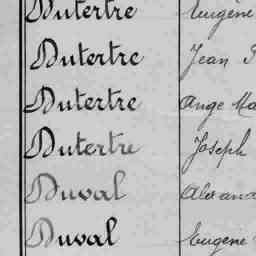 Dutertre Eugène
Dutertre Jean
Dutertre Ange Ma
Dutertre Joseph
Duval Alexand
Duval Eugène